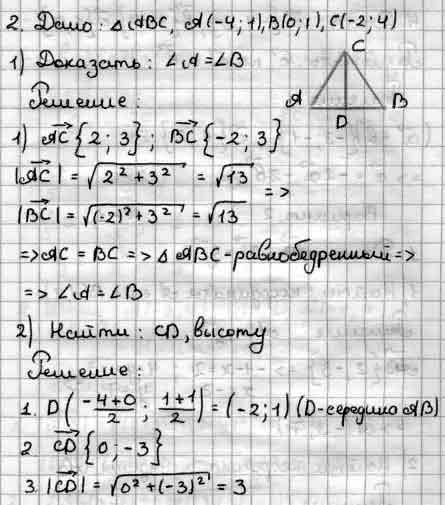 2. Дано: △ABC, A(-4;1), B(0;1), C(-2;4)
1) Доказать: ∠A=∠B
C
Решение:
A B
D
1) AC⃗{2;3}; BC⃗{-2;3}
|AC⃗| = √(2²+3²) = √13
=>
|BC⃗| = √((-2)²+3²) = √13
=> AC = BC => △ABC-равнобедренный =>
=> ∠A=∠B
2) Найти: CD, высоту
Решение:
1. D(-4+0/2; 1+1/2) = (-2;1) (D-середина AB)
2 CD⃗{0;-3}
3. |CD⃗| = √(0²+(-3)²) = 3